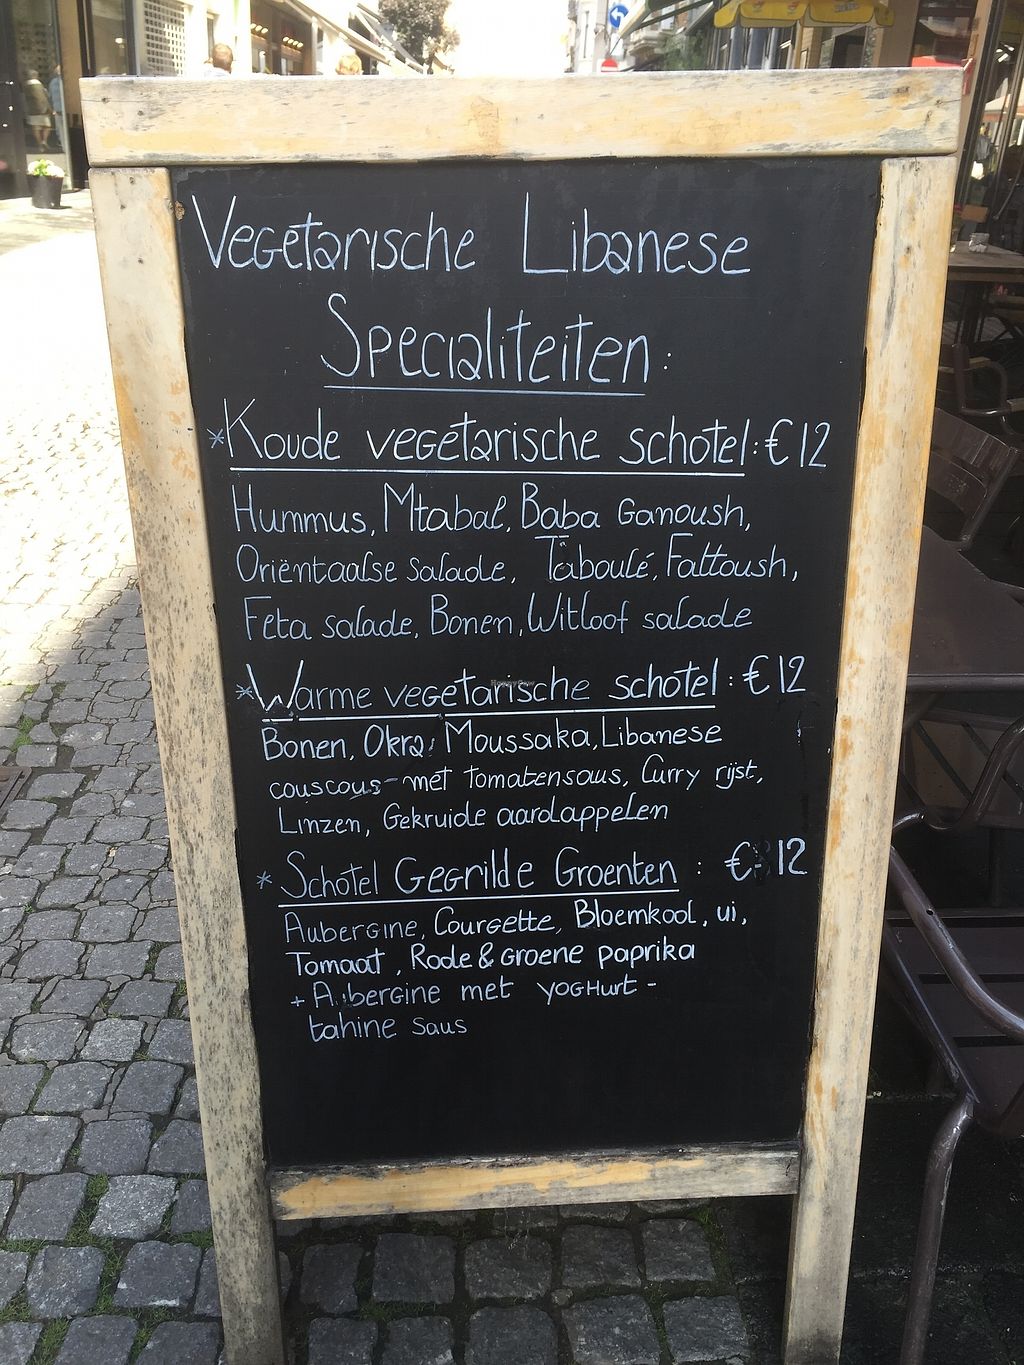 Vegetarische Libanese
Specialiteiten:
*Koude vegetarische schotel: €12
Hummus, Mtabal, Baba Ganoush,
Oriëntaalse salade, Taboulé, Fattoush,
Feta salade, Bonen, Witloof salade
*Warme vegetarische schotel: €12
Bonen, Okra, Moussaka, Libanese
couscous-met tomatensaus, Curry rijst,
Linzen, Gekruide aardappelen
* Schotel Gegrilde Groenten : € 12
Aubergine, Courgette, Bloemkool, ui,
Tomaat, Rode & groene paprika
+ Aubergine met yoghurt -
tahine saus